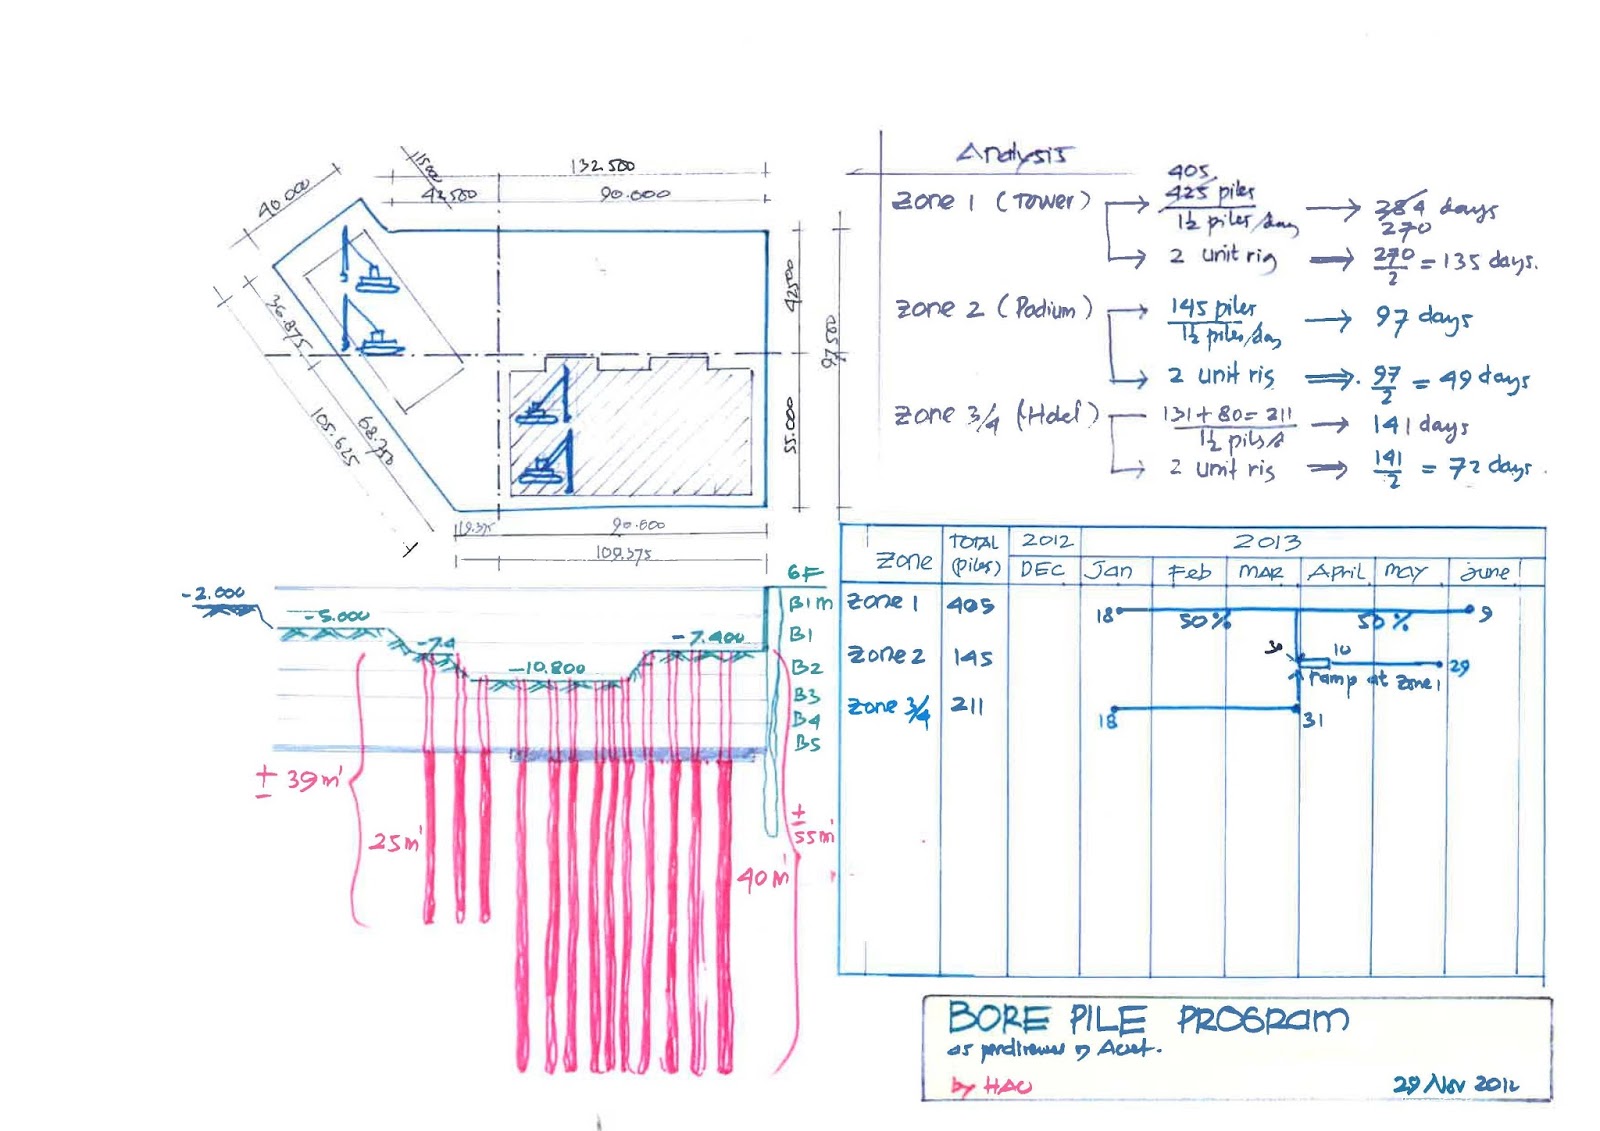 132.500
15.000
42.500
90.000
40.000
42.500
97.500
36.875
68.750
105.625
55.000
19.375
90.000
109.375
Analysis
Zone 1 (Tower)
405
425 piles
1½ piles/day
384 days
270
2 unit rig
270
2
= 135 days.
Zone 2 (Podium)
145 piles
1½ piles/day
97 days
2 unit rig
97
2
= 49 days
Zone 3/4 (Hotel)
131 + 80 = 211
1½ pils/d
141 days
2 unit rig
141
2
= 72 days.
-2.000
-5.000
-7.4
-10.800
-7.400
GF
B1M
B1
B2
B3
B4
B5
± 39m'
25m'
± 55m'
40m'
Zone
TOTAL (piles)
2012
2013
DEC
Jan
Feb
MAR
April
may
june
Zone 1
405
18
50%
50%
9
Zone 2
145
10
29
ramp at zone 1
Zone 3/4
211
18
31
BORE PILE PROGRAM
by HAO
29 Nov 2012